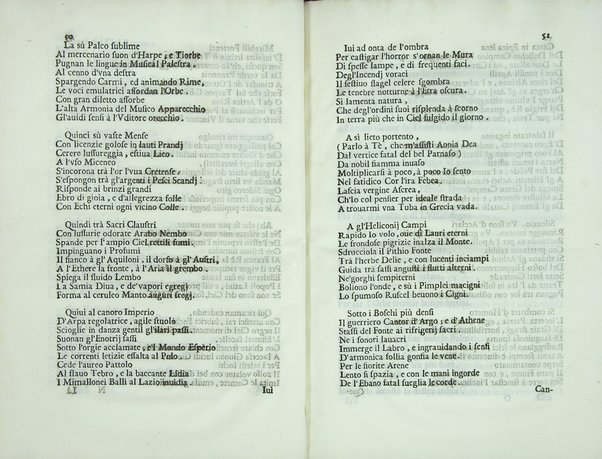 50
La sù Palco sublime
Al mercenario suon d'Harpe, e Tiorbe
Pugnan le lingue in Musical Palestra,
Al cenno d'vna destra
Spargendo Carmi, ed animando Rime,
Le voci emulatrici assordan l'Orbe.
Con gran diletto assorbe
L'alta Armonia del Musico Apparecchio
Gl'auidi sensi à l'Vditore orecchio.
Quinci sù vaste Mense
Con licenzie golose in lauti Prandj
Cerere lussureggia, estiua Lieo.
A l'vso Miceneo
S'incorona trà l'or l'vua Cretense,
S'espongon trà gl'argenti i Pesci Scandj:
Risponde ai brinzi grandi
Ebro di gioia, e d'allegrezza folle
Con Echi eterni ogni vicino Colle.
Quindi trà Sacri Claustri
Con lussurie odorate Arabo Nembo
Spande per l'ampio Ciel rettili fumi.
Impinguano i Profumi
Il fianco à gl'Aquiloni, il dorso à gl'Austri,
A l'Ethere la fronte, à l'Aria il grembo.
Spiega il fluido Lembo
La Samia Diua, e de' vapori egregj
Forma al ceruleo Manto augusti fregj.
Quiui al canoro Imperio
D'Arpa regolatrice, agile stuolo
Scioglie in danza gentil gl'ilari passi.
Suonan gl'Enotrj sassi
Sotto l'orgie acclamate, e'l Mondo Esperio
Le correnti letizie essalta al Polo.
Cede l'aureo Pattolo
Al flauo Tebro, e la baccante Lidia
I Mimalloneí Balli al Lazio inuidia.
Iui
51
Iui ad onta de l'ombra
Per castigar l'horror s'ornan le Mura
Di spesse lampe, e di frequenti faci.
Degl'Incendj voraci
Il festiuo flagel celere sgombra
Le tenebre notturne à l'Etra oscura.
Si lamenta natura,
Che degl'ordini suoi risplenda à scorno
In terra più che in Ciel fulgido il giorno.
A sì lieto portento,
(Parlo à Tè, che m'assisti Aonia Dea
Dal vertice fatal del bel Parnaso)
Da nobil fiamma inuaso
Moltiplicarsi à poco, à poco Io sento
Nel fatidico Cor l'ira Febea.
Lascia vergine Ascrea,
Ch'Io col pensier per ideale strada
A trouarmi vna Tuba in Grecia vada.
A gl'Heliconij Campi
Rapido Io volo, oue di Lauri eterni
Le frondose pigrizie inalza il Monte.
Sdrucciola il Pithio Fonte
Trà l'herbe Delie, e con lucenti inciampi
Guida trà sassi angusti i flutti alterni.
Ne'gorghi sempiterni
Bollono l'onde, e sù i Pimplei macigni
Lo spumoso Ruscel beuono i Cigni.
Sotto i Boschi più densi
Il guerriero Cantor d'Argo, e d'Athene
Stassi del Fonte ai rifrigerj sacri.
Ne i sonori lauacri
Immerge il Labro, e ingrauidando i sensi
D'armonica follia gonfia le vene.
Per le fiorite Arene
Lento si spazia, e con le mani ingorde
De l'Ebano fatal sueglia le corde.
Can-